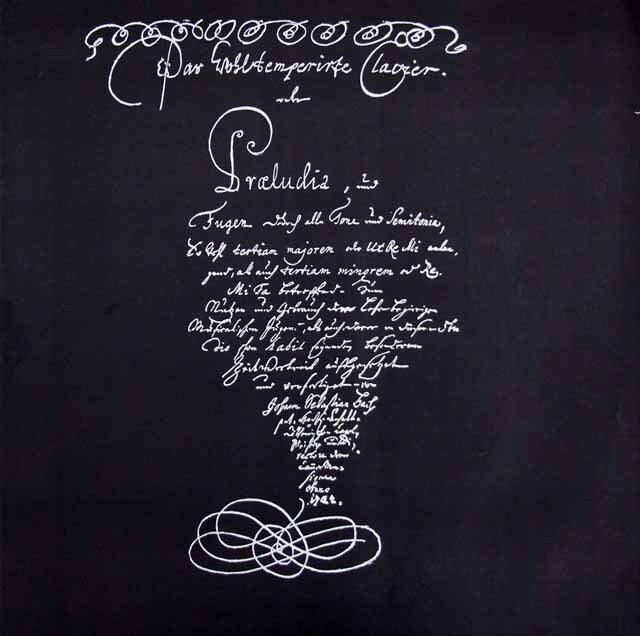 Das Wohltemperirte Clavier.
oder
Præludia, und
Fugen durch alle Tone und Semitonia,
So wohl tertiam majorem oder Ut Re Mi anlan-
gend, als auch tertiam minorem oder Re
Mi Fa betreffend. Zum
Nutzen und Gebrauch der Lehrbegierigen
Musicalischen Jugend, als auch derer in diesem
schon habil seyenden besonderem
Zeitvertreib auffgesetzet
und verfertiget von
Johann Sebastian Bach
p. t.
Anno
1722.